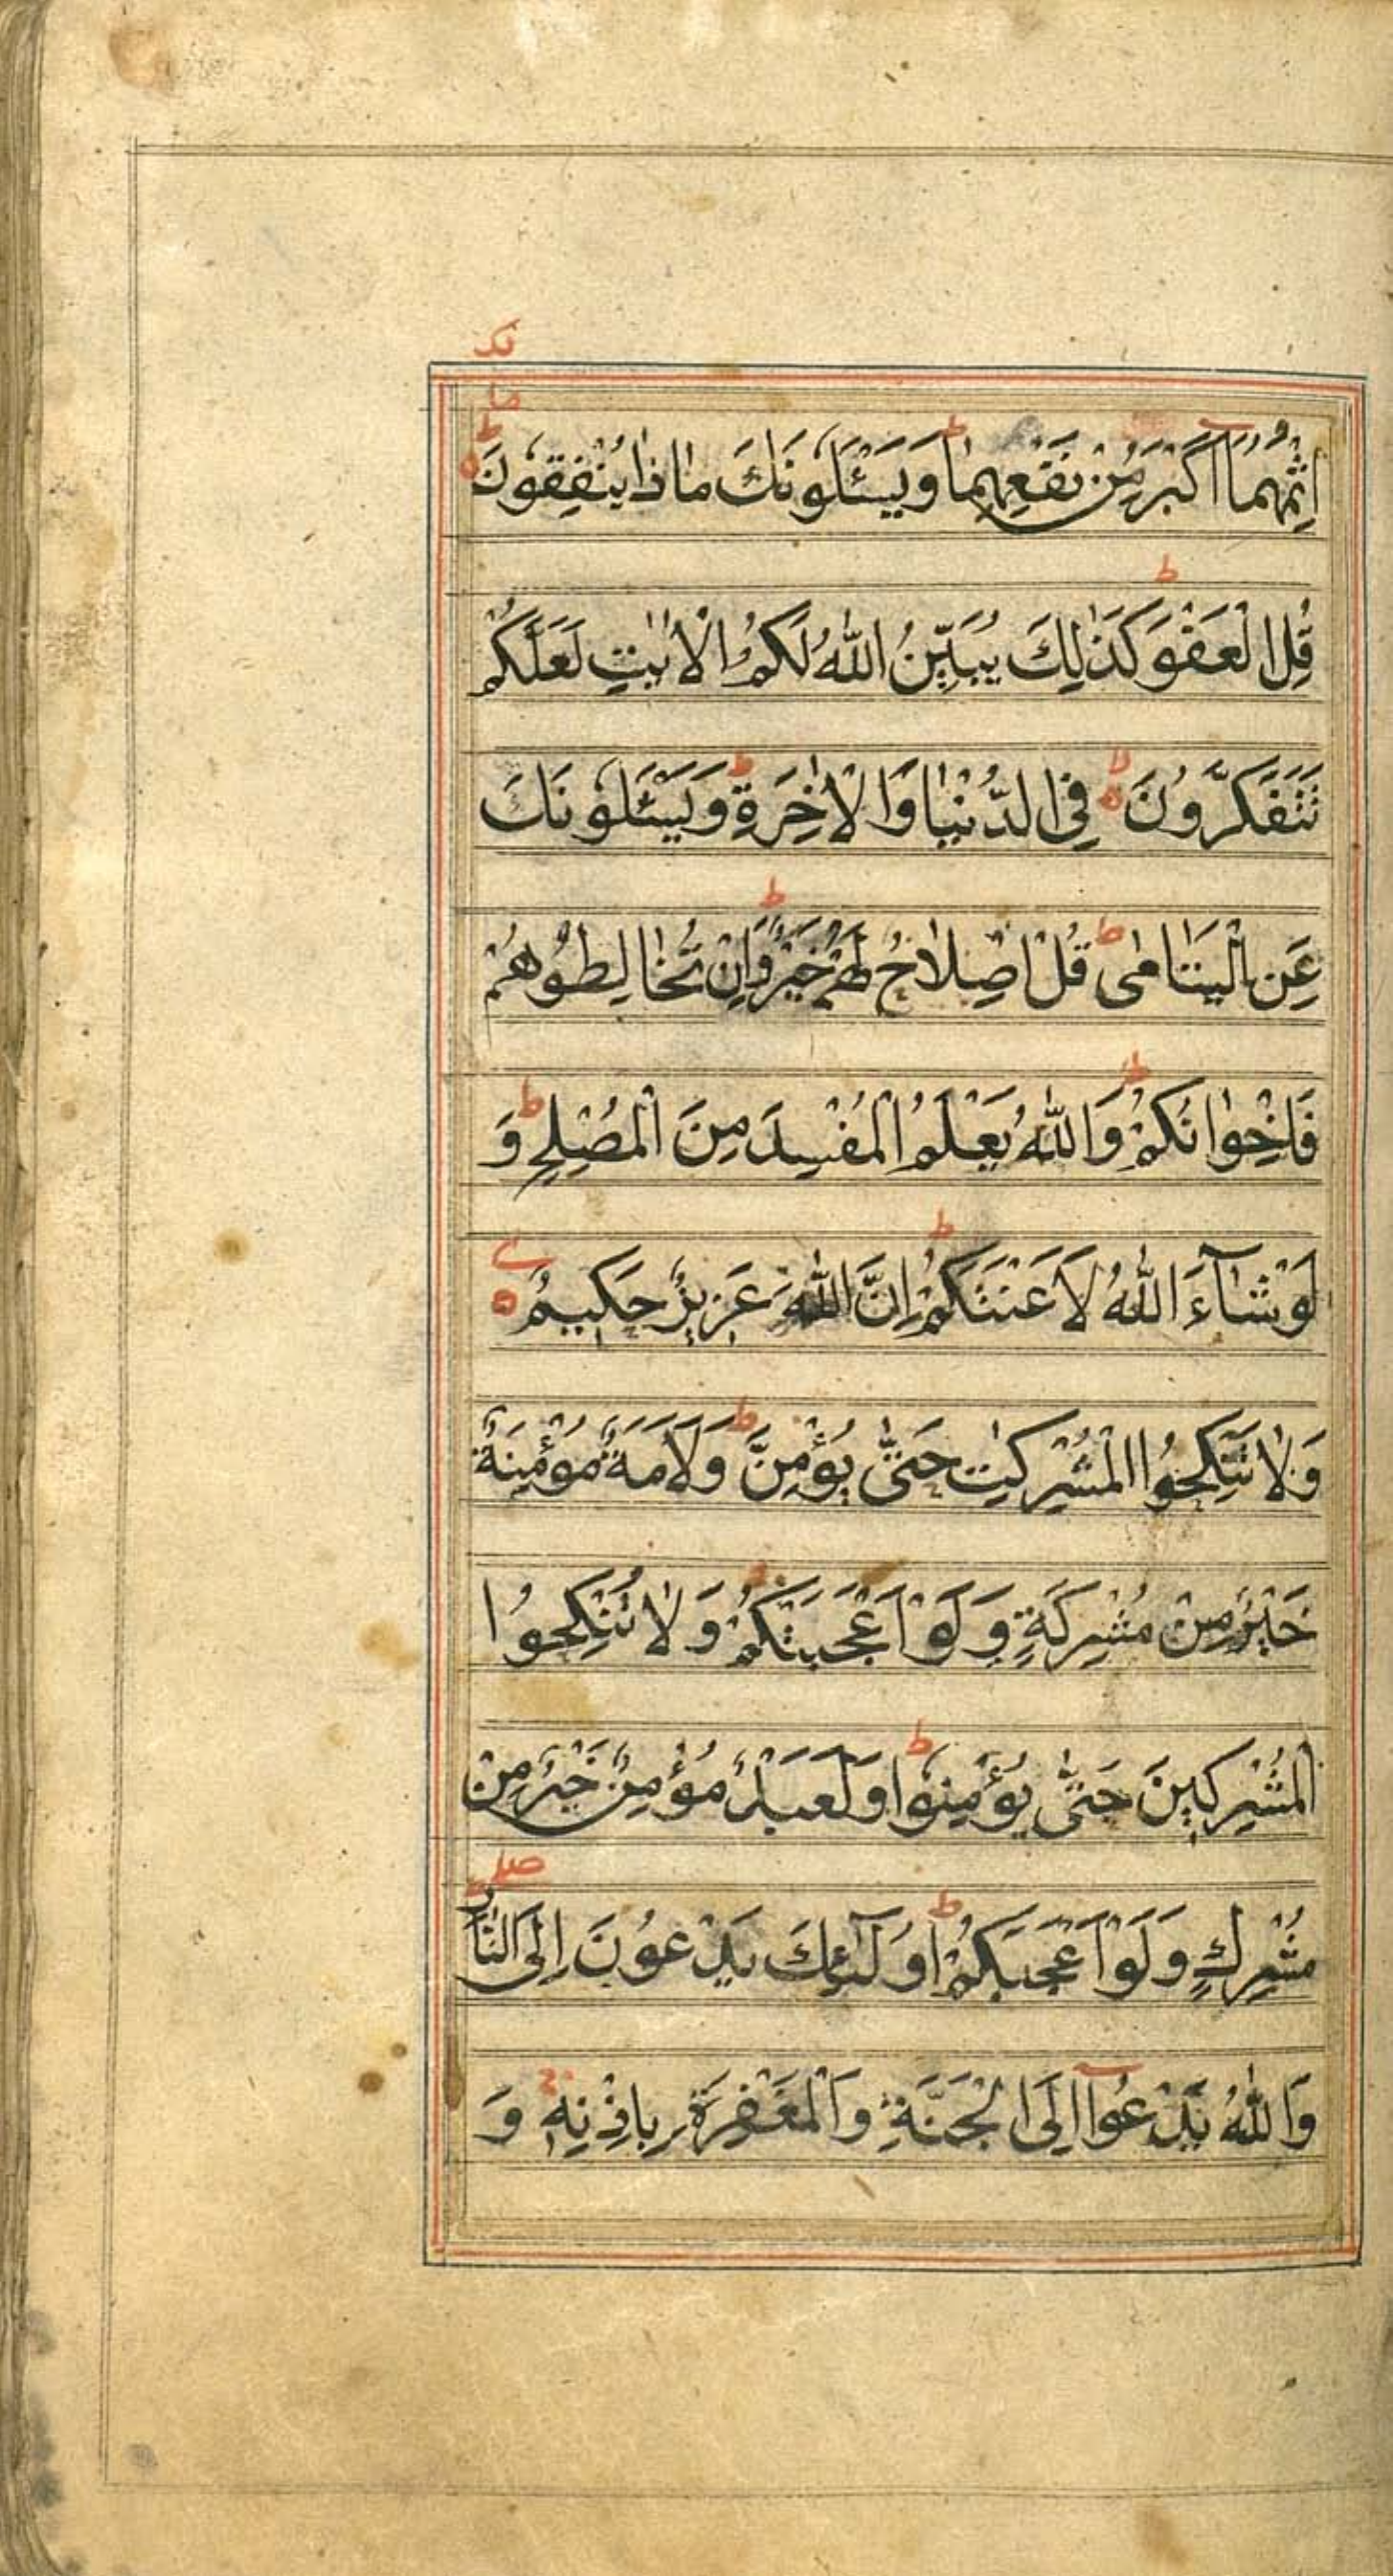 اِثْمُهُمَآ اَكْبَرُ مِنْ نَفْعِهِمَا ط وَيَسْـَٔلُونَكَ مَاذَا يُنْفِقُونَ ط
قُلِ الْعَفْوَ ط كَذٰلِكَ يُبَيِّنُ اللّٰهُ لَكُمُ الْاٰيٰتِ لَعَلَّكُمْ
تَتَفَكَّرُونَ لا فِى الدُّنْيَا وَالْاٰخِرَةِ ط وَيَسْـَٔلُونَكَ
عَنِ الْيَتَامٰى ط قُلْ اِصْلَاحٌ لَهُمْ خَيْرٌ ط وَاِنْ تُخَالِطُوهُمْ
فَاِخْوَانُكُمْ ط وَاللّٰهُ يَعْلَمُ الْمُفْسِدَ مِنَ الْمُصْلِحِ ط وَ
لَوْ شَآءَ اللّٰهُ لَاَعْنَتَكُمْ ط اِنَّ اللّٰهَ عَزِيزٌ حَكِيمٌ
وَلَا تَنْكِحُوا الْمُشْرِكٰتِ حَتّٰى يُؤْمِنَّ ط وَلَاَمَةٌ مُؤْمِنَةٌ
خَيْرٌ مِنْ مُشْرِكَةٍ وَلَوْ اَعْجَبَتْكُمْ وَلَا تُنْكِحُوا
الْمُشْرِكِينَ حَتّٰى يُؤْمِنُوا ط وَلَعَبْدٌ مُؤْمِنٌ خَيْرٌ مِنْ
مُشْرِكٍ وَلَوْ اَعْجَبَكُمْ ط اُولٰٓئِكَ يَدْعُونَ اِلَى النَّارِ صلے
وَاللّٰهُ يَدْعُوٓا اِلَى الْجَنَّةِ وَالْمَغْفِرَةِ بِاِذْنِهِ وَ